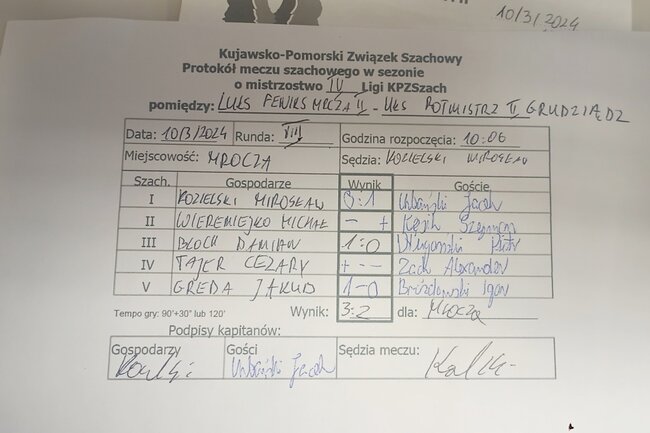 10/3/2024
Kujawsko-Pomorski Związek Szachowy
Protokół meczu szachowego w sezonie
o mistrzostwo IV Ligi KPZSzach
pomiędzy: LUKS FENIKS MROCZA II - UKS ROTMISTRZ II GRUDZIĄDZ
Data: 10/3/2024 Runda: VIII Godzina rozpoczęcia: 10:06
Miejscowość: MROCZA Sędzia: KOZIELSKI MIROSŁAW
Szach. Gospodarze Wynik Goście
I KOZIELSKI MIROSŁAW 0:1 Urbański Jacek
II WIEREMIEJKO MICHAŁ - + Kęsik Szymon
III BLOCH DAMIAN 1:0 Piotr
IV TAJER CEZARY + - - Zach Alexander
V GREDA JAKUB 1-0 Igor
Tempo gry: 90'+30" lub 120' Wynik: 3:2 dla: MROCZA
Podpisy kapitanów:
Gospodarzy Gości Sędzia meczu:
Urbański Jacek